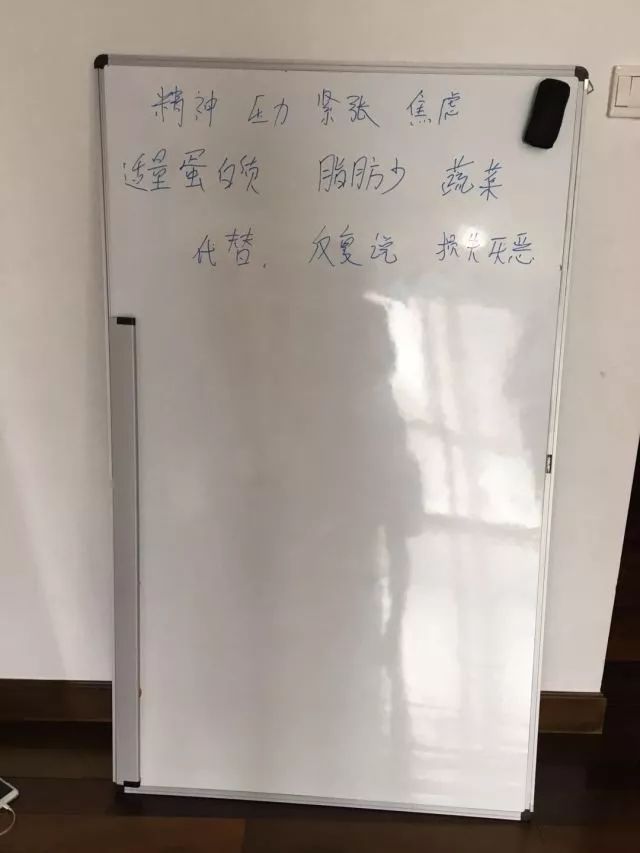 精神 压力 紧张 焦虑
适量蛋白质 脂肪少 蔬菜
代替. 反复说 损失厌恶